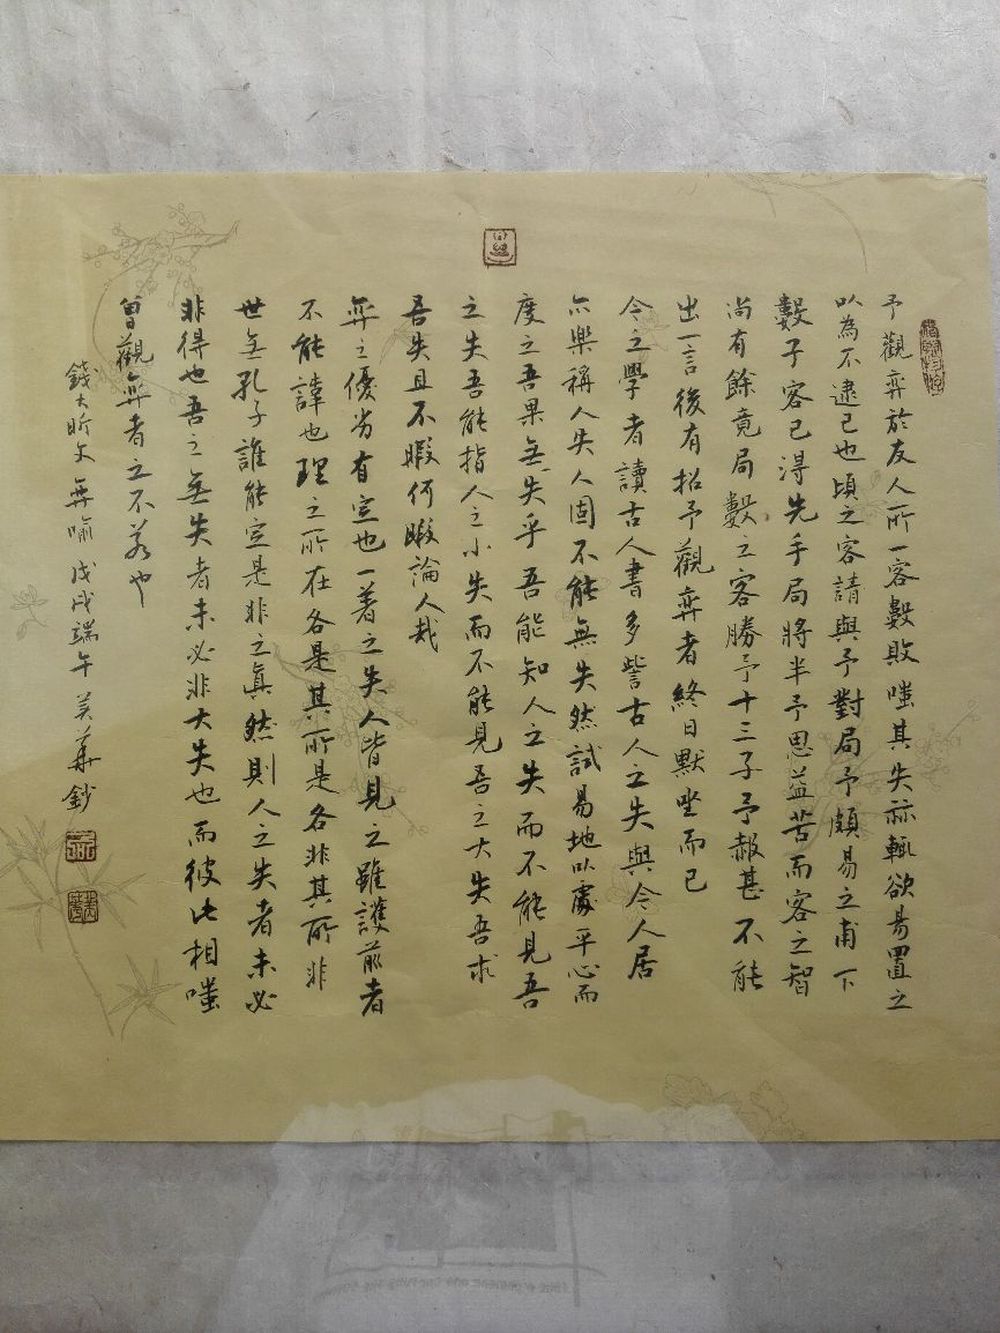 予觀弈於友人所一客數敗嗤其失祘輒欲易置之
以為不逮己也頃之客請與予對局予頗易之甫下
數子客已得先手局將半予思益苦而客之智
尚有餘竟局數之客勝予十三子予赧甚不能
出一言後有招予觀弈者終日默坐而已
今之學者讀古人書多訾古人之失與今人居
亦樂稱人失人固不能無失然試易地以處平心而
度之吾果無失乎吾能知人之失而不能見吾
之失吾能指人之小失而不能見吾之大失吾求
吾失且不暇何暇論人哉
弈之優劣有定也一著之失人皆見之雖護前者
不能諱也理之所在各是其所是各非其所非
世無孔子誰能定是非之真然則人之失者未必
非得也吾之無失者未必非大失也而彼此相嗤
曾觀弈者之不若也
錢大昕文弈喻戊戌端午美華鈔